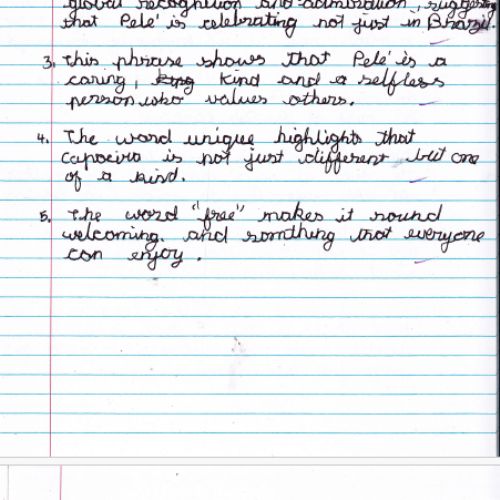 global recognition and admiration, suggesting
that Pele' is celebrating not just in Brazil.
3. This phrase shows that Pele' is a
caring, kind and a selfless
person who values others.
4. The word unique highlights that
capoeira is not just different but one
of a kind.
5. The word "free" makes it sound
welcoming. and somthing that everyone
can enjoy.